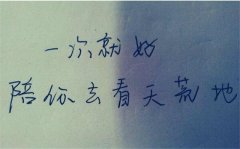 一次就好
陪你去看天荒地